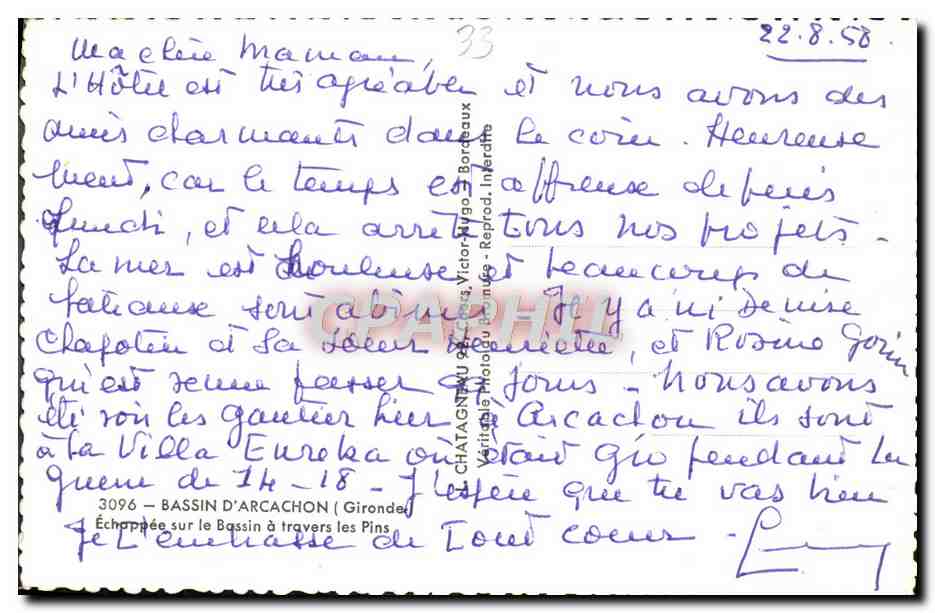 33
22.8.58.
Ma chère Maman,
L'Hôtel est très agréable et nous avons des
amis charmants dans le coin. Heureuse
ment, car le temps est affreuse depuis
Lundi, et cela arrête tous nos projets -
La mer est houleuse et beaucoup de
bateaux sont abimés Il y a ici Denise
Chapotin et sa sœur, et Rosine Gorin
qui est venue passer jours - Nous avons
été voir les Gautier hier à Arcachon ils sont
à la Villa Eureka où était Gio pendant la
guerre de 14-18 - J'espère que tu vas bien
Je t'embrasse de tout cœur -
CHATAGNEAU 99, Cours Victor-Hugo - Bordeaux
Véritable Photo du Bromure - Reprod. Interdite
CPARPHIL
3096 — BASSIN D'ARCACHON ( Gironde)
Échappée sur le Bassin à travers les Pins